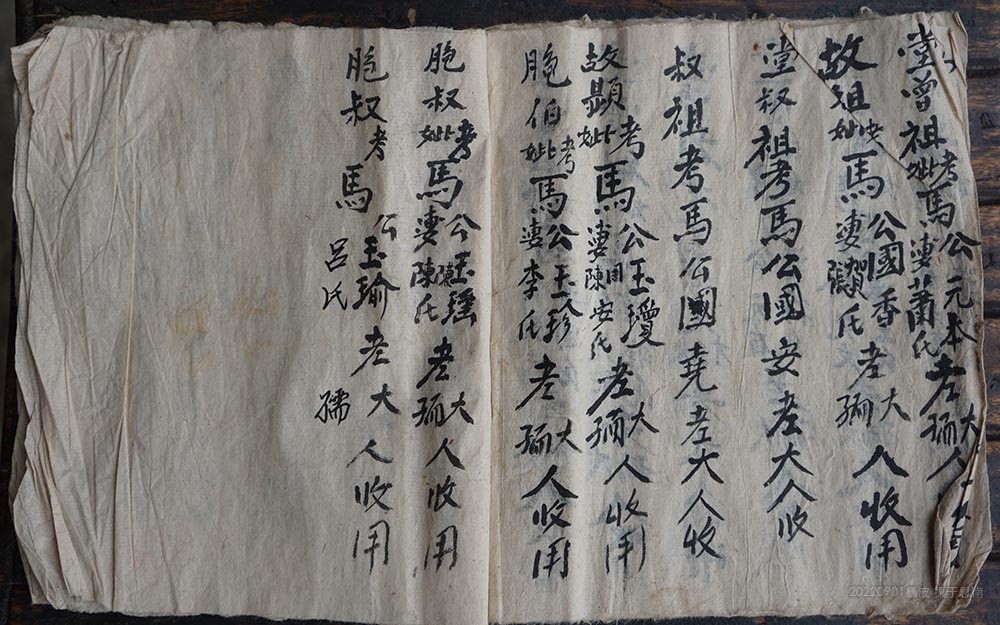 堂曾祖考妣馬公元本婆蕭氏老大孺人
故祖考妣馬公國香婆賀張氏老大孺人收用
堂叔祖考馬公國安老大人收
叔祖考馬公國堯老大人收
故顯考妣馬公玉瓊婆周陳安氏老大孺人收用
胞伯考妣馬公玉珍婆李氏老大孺人收用
胞叔考妣馬公玉瑤婆陳氏老大孺人收用
胞叔考馬公玉瑜呂氏老大孺人收用
20220901杨波 摄于思南